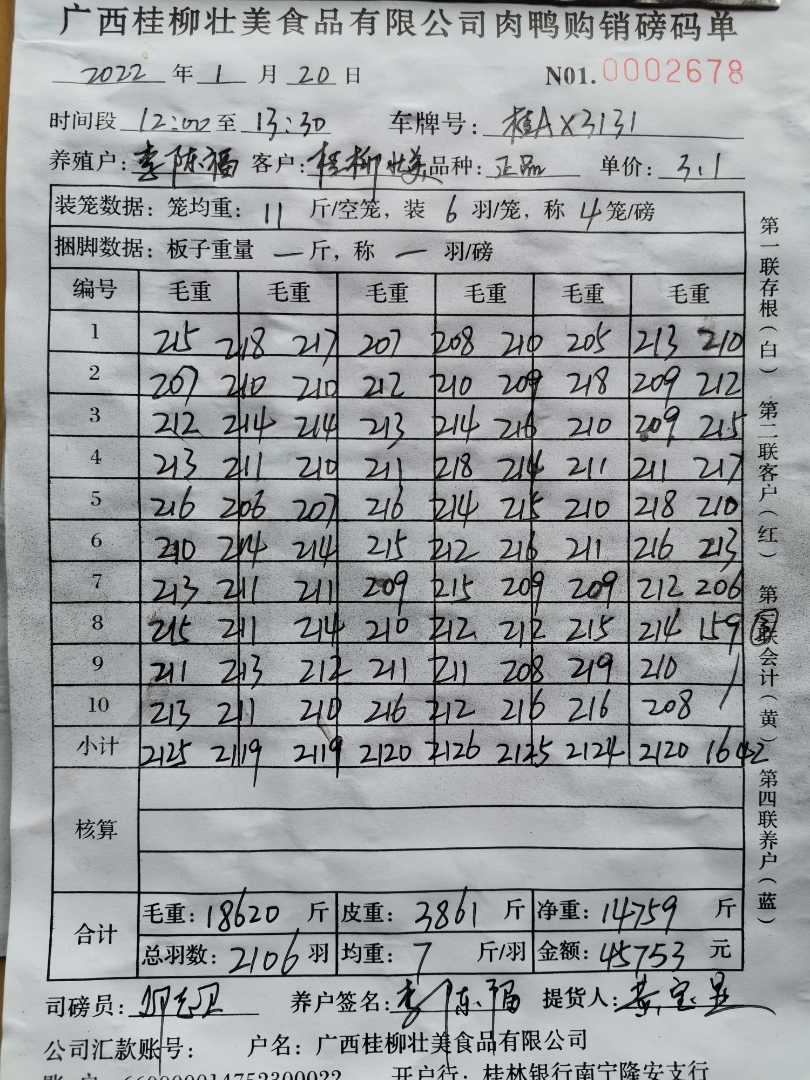 广西桂柳壮美食品有限公司肉鸭购销磅码单
2022 年 1 月 20 日 N01. 0002678
时间段 12:00 至 13:30 车牌号: 桂AX3131
养殖户: 李陈福 客户: 桂柳壮美 品种: 正品 单价: 3.1
装笼数据: 笼均重: 11 斤/空笼, 装 6 羽/笼, 称 4 笼/磅
捆脚数据: 板子重量 一 斤, 称 一 羽/磅
编号 毛重 毛重 毛重 毛重 毛重 毛重
1 215 218 217 207 208 210 205 213 210
2 207 210 210 212 210 209 218 209 212
3 212 214 214 213 214 216 210 209 215
4 213 211 210 211 218 214 211 211 217
5 216 206 207 216 214 215 210 218 210
6 210 214 214 215 212 216 211 216 213
7 213 211 211 209 215 209 209 212 206
8 215 211 214 210 212 212 215 214 159
9 211 213 212 211 211 208 219 210
10 213 211 210 216 212 216 216 208
小计 2125 2119 2119 2120 2126 2125 2124 2120 1642
核算
合计 毛重: 18620 斤 皮重: 3861 斤 净重: 14759 斤
总羽数: 2106 羽 均重: 7 斤/羽 金额: 45753 元
司磅员: 养户签名: 李陈福 提货人:
公司汇款账号: 户名: 广西桂柳壮美食品有限公司
账户 660000014752300022 开户行: 桂林银行南宁隆安支行
第一联存根(白) 第二联客户(红) 第三联会计(黄) 第四联养户(蓝)